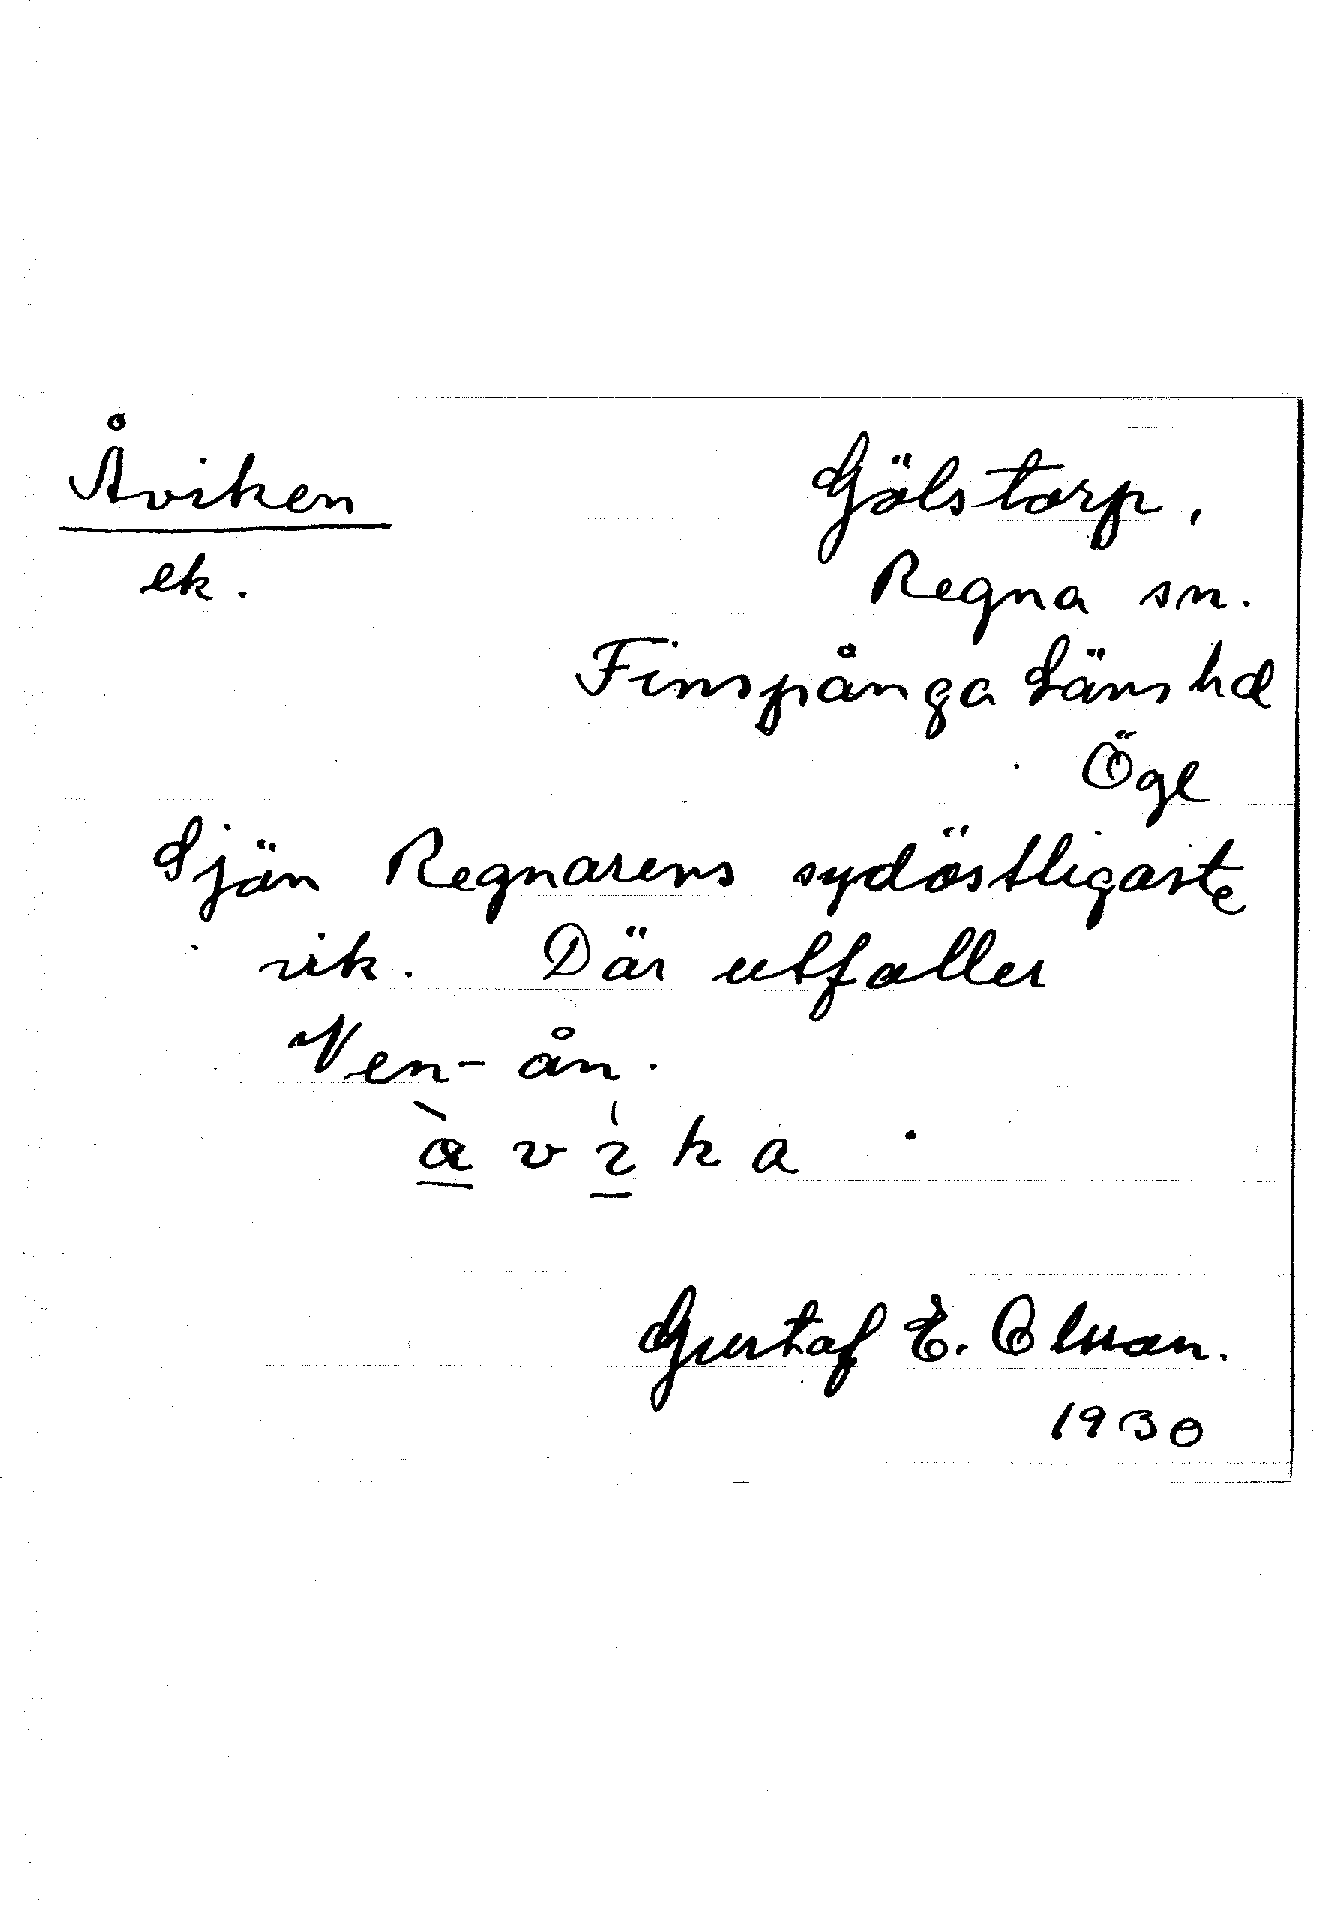 Åviken
ek.
Gölstorp,
Regna sn.
Finspånga Läns hd
Ögl
Sjön Regnarens sydöstligaste
vik. Där utfaller
Ven-ån.
a v i k a
Gustaf E. Olsson.
1930